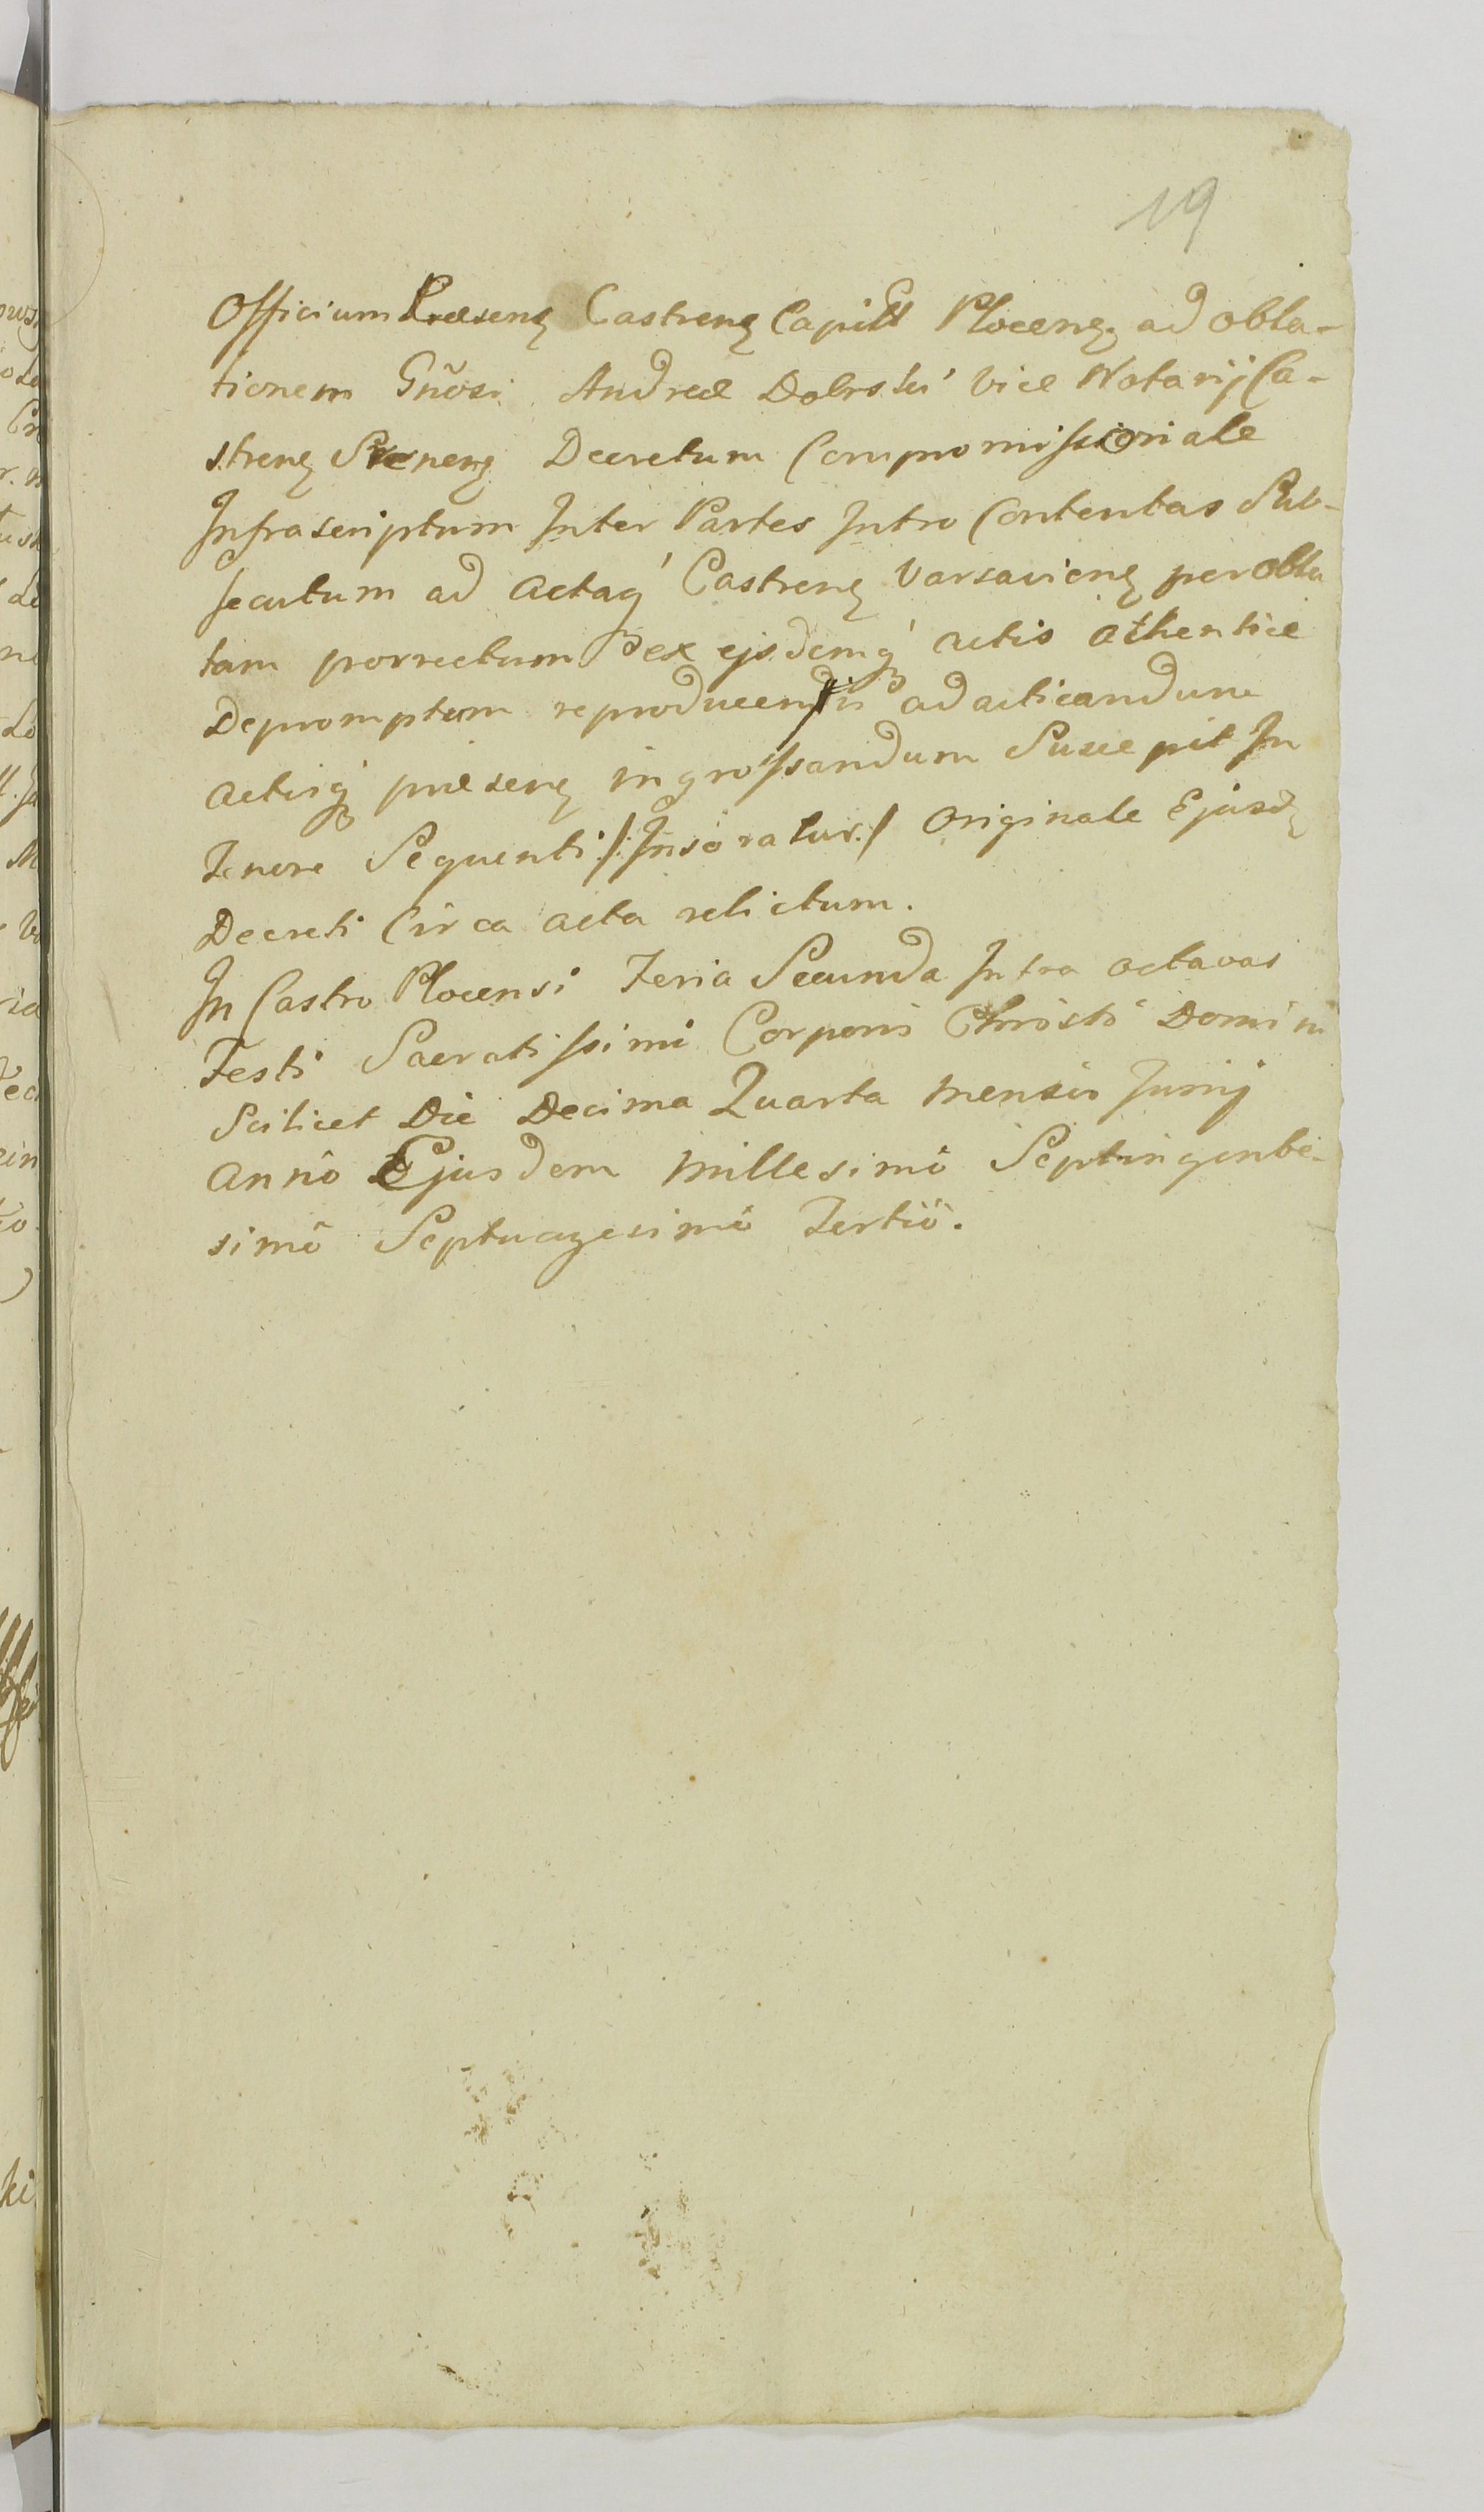 19
Officium Præsenꝫ Castrenꝫ Capitł Plocenꝫ ad obla-
tionem Gñosi Andreæ Dobrski Vice Notarij Ca-
strenꝫ Srenenꝫ Decretum Compromissionale
Infrascriptum Inter Partes Intro Contentas Sub-
secutum ad Actaqꝫ Castrenꝫ Varsavienꝫ per obla
tam porrectum ex ejsdemqꝫ actis athentice
Depromptum reproducendis adacticandum
Actisqꝫ præsenꝫ ingrossandum Suscepit In
Tenore Sequenti /: Inseratur :/ Originale Ejusdꝫ
Decreti Circa acta relictum.
In Castro Plocensi Feria Secunda Intra octavas
Festi Sacratissimi Corporis Christi Domini
Scilicet Die Decima Quarta mensis Junij
Anno Ejusdem Millesimô Septingente-
simô Septuagesimô Tertiô.